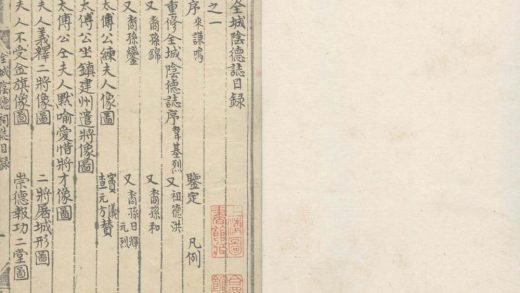 全城陰德誌目錄
之一
序 來謙鳴 鑒定 凡例
重修全城陰德誌序 韋基烈 又 祖德洪
又 裔孫錦 又 裔孫和
又 裔孫鑾 又 裔孫日輝
太傅公練夫人像圖 竇儀
太傅公坐鎮建州遣將像圖
太傅公仝夫人默喻愛惜將才像圖
夫人義釋二將像圖 二將屠城形圖
夫人不受金旗像圖 崇德報功二堂圖
全城陰德祠誌目錄